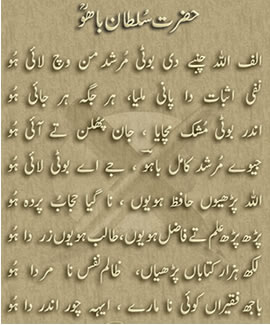 حضرت سُلطان باھوؒ
الف اللہ چنبے دی بوٹی مُرشد من وچ لائی ہُو
نفی اثبات دا پانی ملیا، ہر جگہ ہر جائی ہُو
اندر بوٹی مُشک مچایا، جان پھلن تے آئی ہُو
جیوے مُرشد کامل باہو، جے اے بوٹی لائی ہُو
اللہ پڑھیوں حافظ ہویوں، نا گیا حجابُ پردہ ہُو
پڑھ پڑھ علم تے فاضل ہویوں، طالب ہویوں زر دا ہُو
لکھ ہزار کتاباں پڑھیاں، ظالم نفس نا مردا ہُو
باھ فقیراں کوئی نا مارے، ایہہ چور اندر دا ہُو